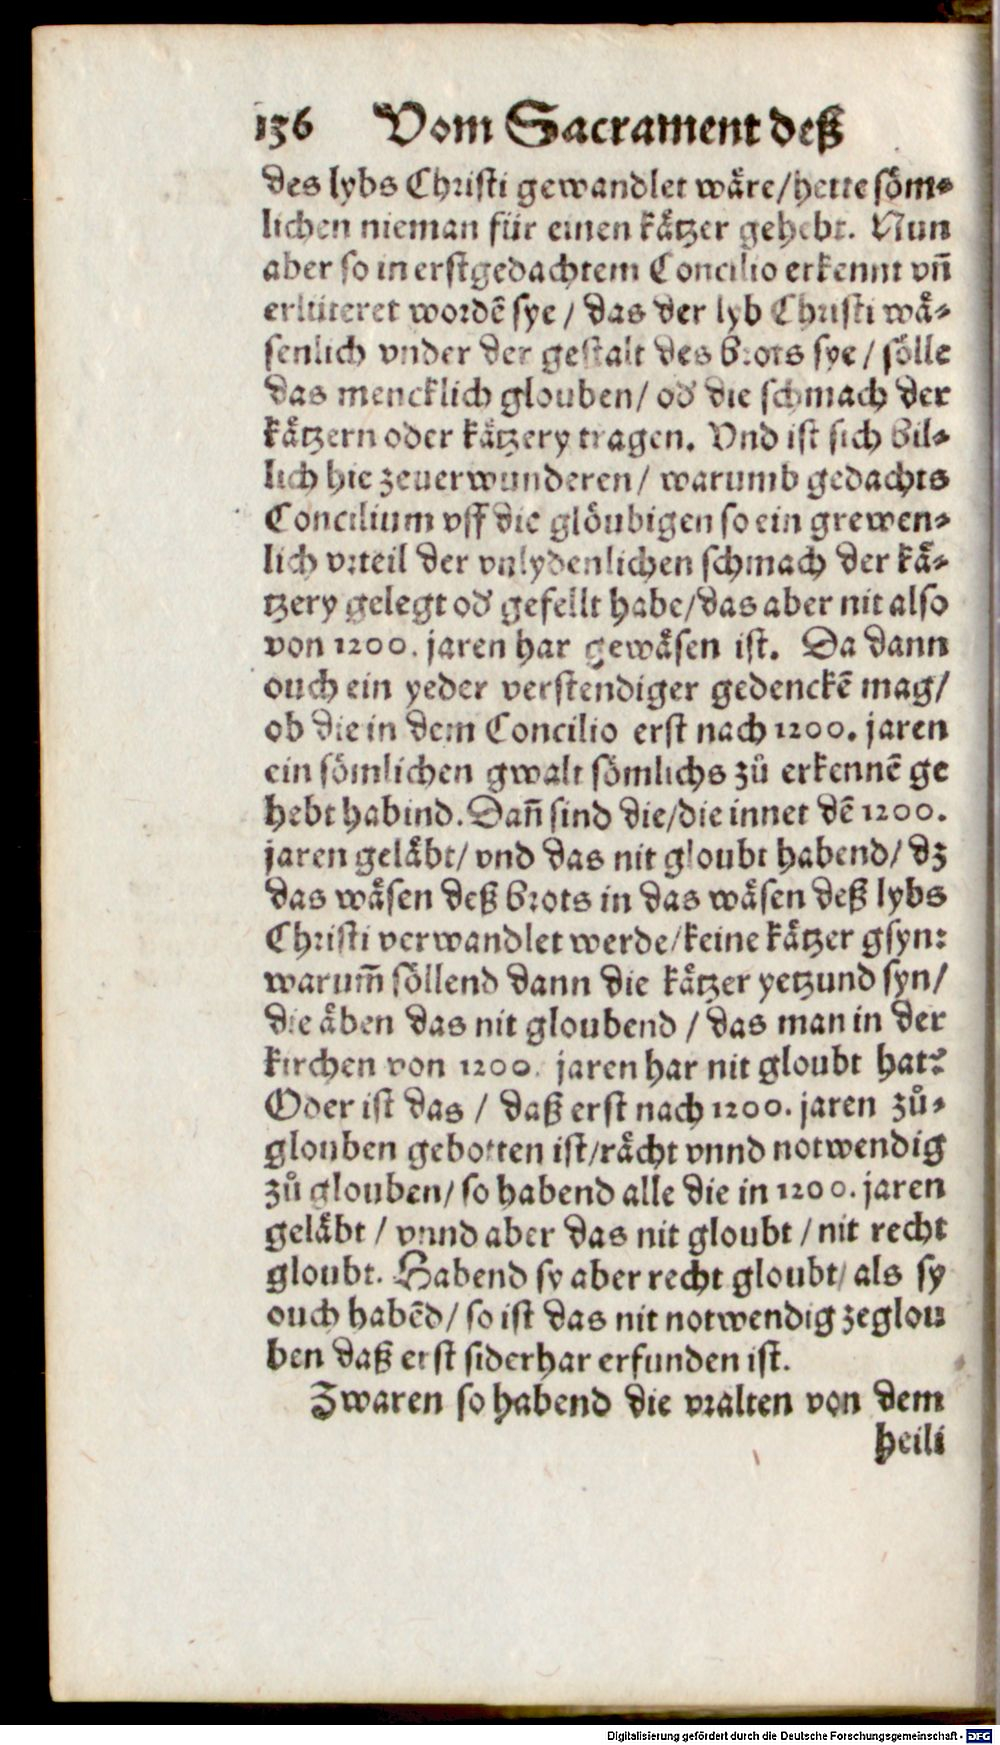 136 Vom Sacrament deß
des lybs Christi gewandlet wäre/hette söm⸗
lichen nieman für einen kätzer gehebt. Nun
aber so in erstgedachtem Concilio erkennt vn̄
erlüteret wordē sye / das der lyb Christi wä⸗
senlich vnder der gestalt des brots sye / sölle
das mencklich glouben/ od̕ die schmach der
kätzern oder kätzery tragen. Vnd ist sich bil⸗
lich hie zeuerwunderen/ warumb gedachts
Concilium vff die glöubigen so ein grewen⸗
lich vrteil der vnlydenlichen schmach der kä⸗
tzery gelegt od̕ gefellt habe/das aber nit also
von 1200. jaren har gewäsen ist. Da dann
ouch ein yeder verstendiger gedenckē mag/
ob die in dem Concilio erst nach 1200. jaren
ein sömlichen gwalt sömlichs zů erkennē ge
hebt habind. Dan̄ sind die/die innet dē 1200.
jaren geläbt/ vnd das nit gloubt habend/ dz
das wäsen deß brots in das wäsen deß lybs
Christi verwandlet werde/keine kätzer gsyn:
warum̄ söllend dann die kätzer yetzund syn/
die äben das nit gloubend / das man in der
kirchen von 1200. jaren har nit gloubt hat?
Oder ist das / daß erst nach 1200. jaren zů⸗
glouben gebotten ist/rächt vnnd notwendig
zů glouben/ so habend alle die in 1200. jaren
geläbt / vnnd aber das nit gloubt / nit recht
gloubt. Habend sy aber recht gloubt/ als sy
ouch habēd/ so ist das nit notwendig zeglou
ben daß erst siderhar erfunden ist.
Zwaren so habend die vralten von dem
heili
Digitalisierung gefördert durch die Deutsche Forschungsgemeinschaft - DFG